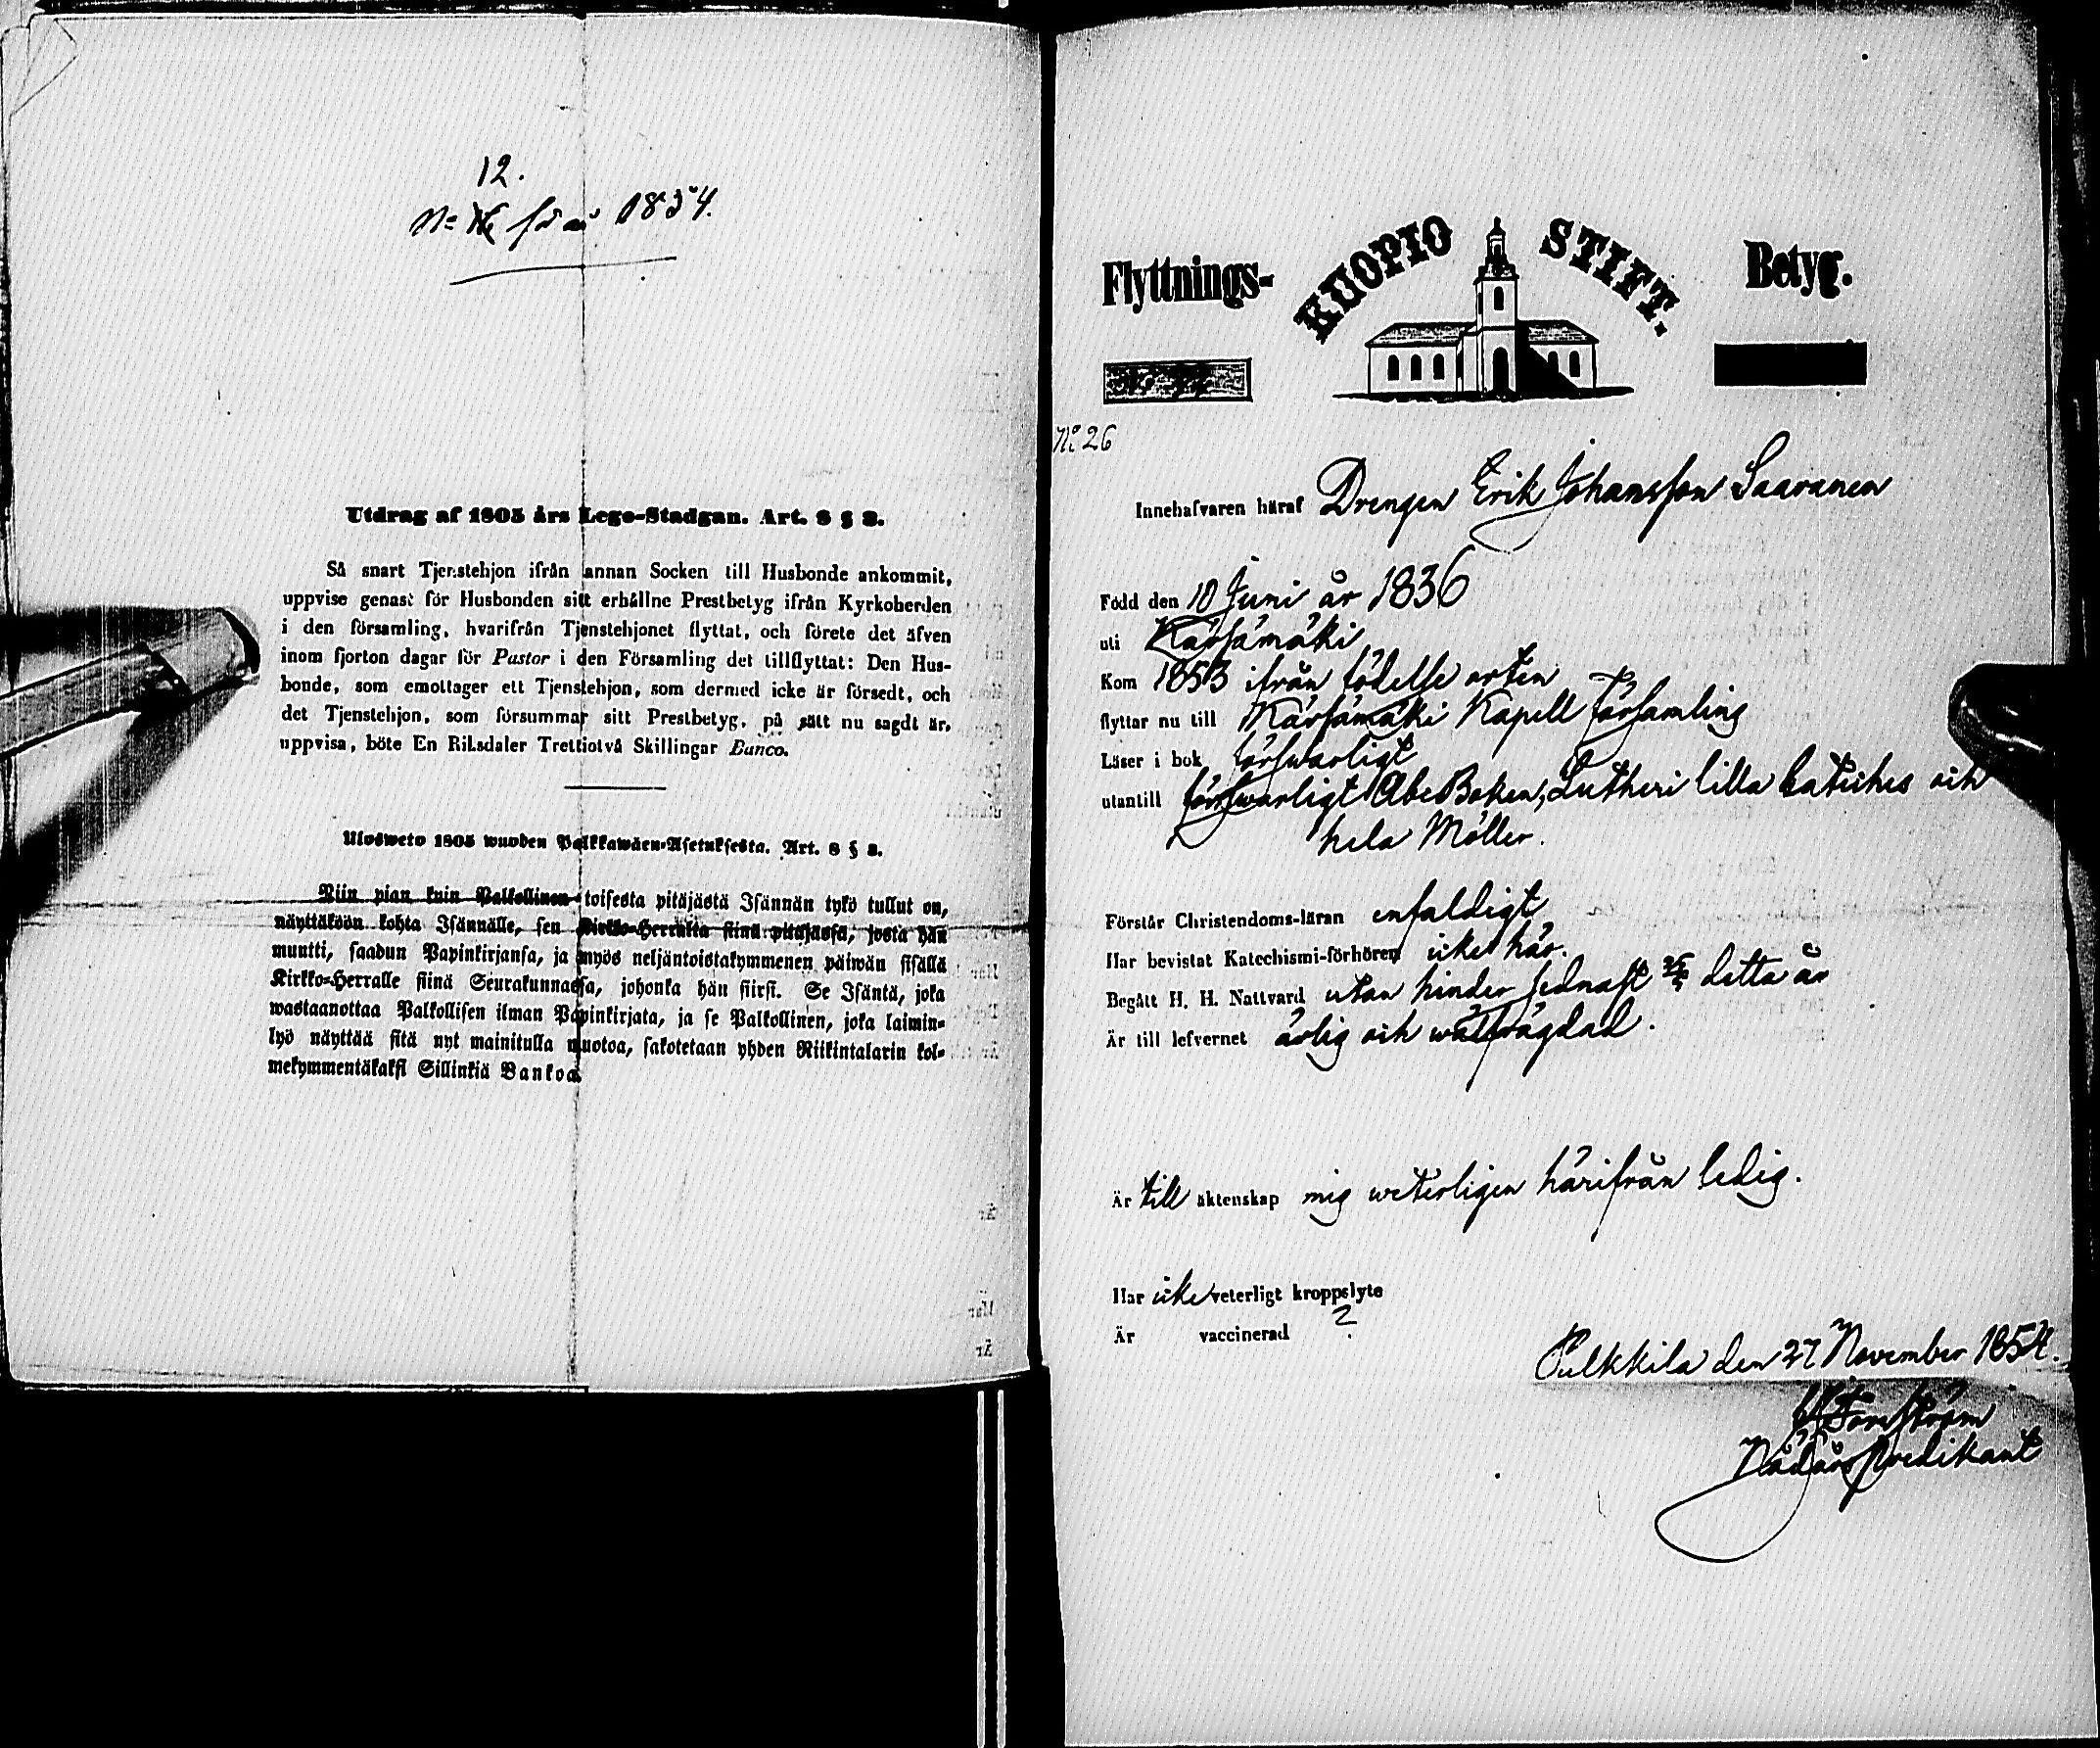 12.
för år 1854.
Utdrag af 1805 års Lego-Stadgan. Art. 8 § 2.
Så snart Tjenstehjon ifrån annan Socken till Husbonde ankommit,
uppvise genast för Husbonden sitt erhållne Prestbetyg ifrån Kyrkoherden
i den församling, hvarifrån Tjenstehjonet flyttat, och förete det äfven
inom fjorton dagar för Pastor i den Församling det tillflyttat: Den Hus-
bonde, som emottager ett Tjenstehjon, som dermed icke är försedt, och
det Tjenstehjon, som försummar sitt Prestbetyg, på sätt nu sagdt är,
uppvisa, böte En Riksdaler Trettiotvå Skillingar Banco.
Ulosweto 1805 wuoden Palkkawäen-Asetuksesta. Art. 8 § 2.
Niin pian kuin Palkollinen toisesta pitäjästä Isännän tykö tullut on,
näyttäköön kohta Isännälle, sen Kirkko-Herralta siinä pitäjässä, josta hän
muutti, saadun Papinkirjansa, ja myös neljäntoistakymmenen päiwän sisällä
Kirkko-Herralle siinä Seurakunnassa, johonka hän siirsi. Se Isäntä, joka
wastaanottaa Palkollisen ilman Papinkirjata, ja se Palkollinen, joka laimin-
lyö näyttää sitä nyt mainitulla muotoa, sakotetaan yhden Riikintalarin kol-
mekymmentäkaksi Sillinkiä Bankoa.
Flyttnings- KUOPIO STIFT. Betyg.
No 26
Innehafvaren häraf Drengen Erik Johansson Saaranen
Född den 10 Juni år 1836
uti Kärsämäki
Kom 1853 ifrån födelse orten
flyttar nu till Kärsämäki Kapell församling
Läser i bok försvarligt
utantill försvarligt Abc Boken, Lutheri lilla Cateches och
hela Möller.
Förstår Christendoms-läran enfaldigt
Har bevistat Katechismi-förhören icke här.
Begått H. H. Nattvard utan hinder sednast detta år
Är till lefvernet ärlig och wälfrägdad.
Är till äktenskap mig weterligen härifrån ledig.
Har icke veterligt kroppslyte
Är vaccinerad ?
Pulkkila den 27 November 1854.
Nådårspredikant